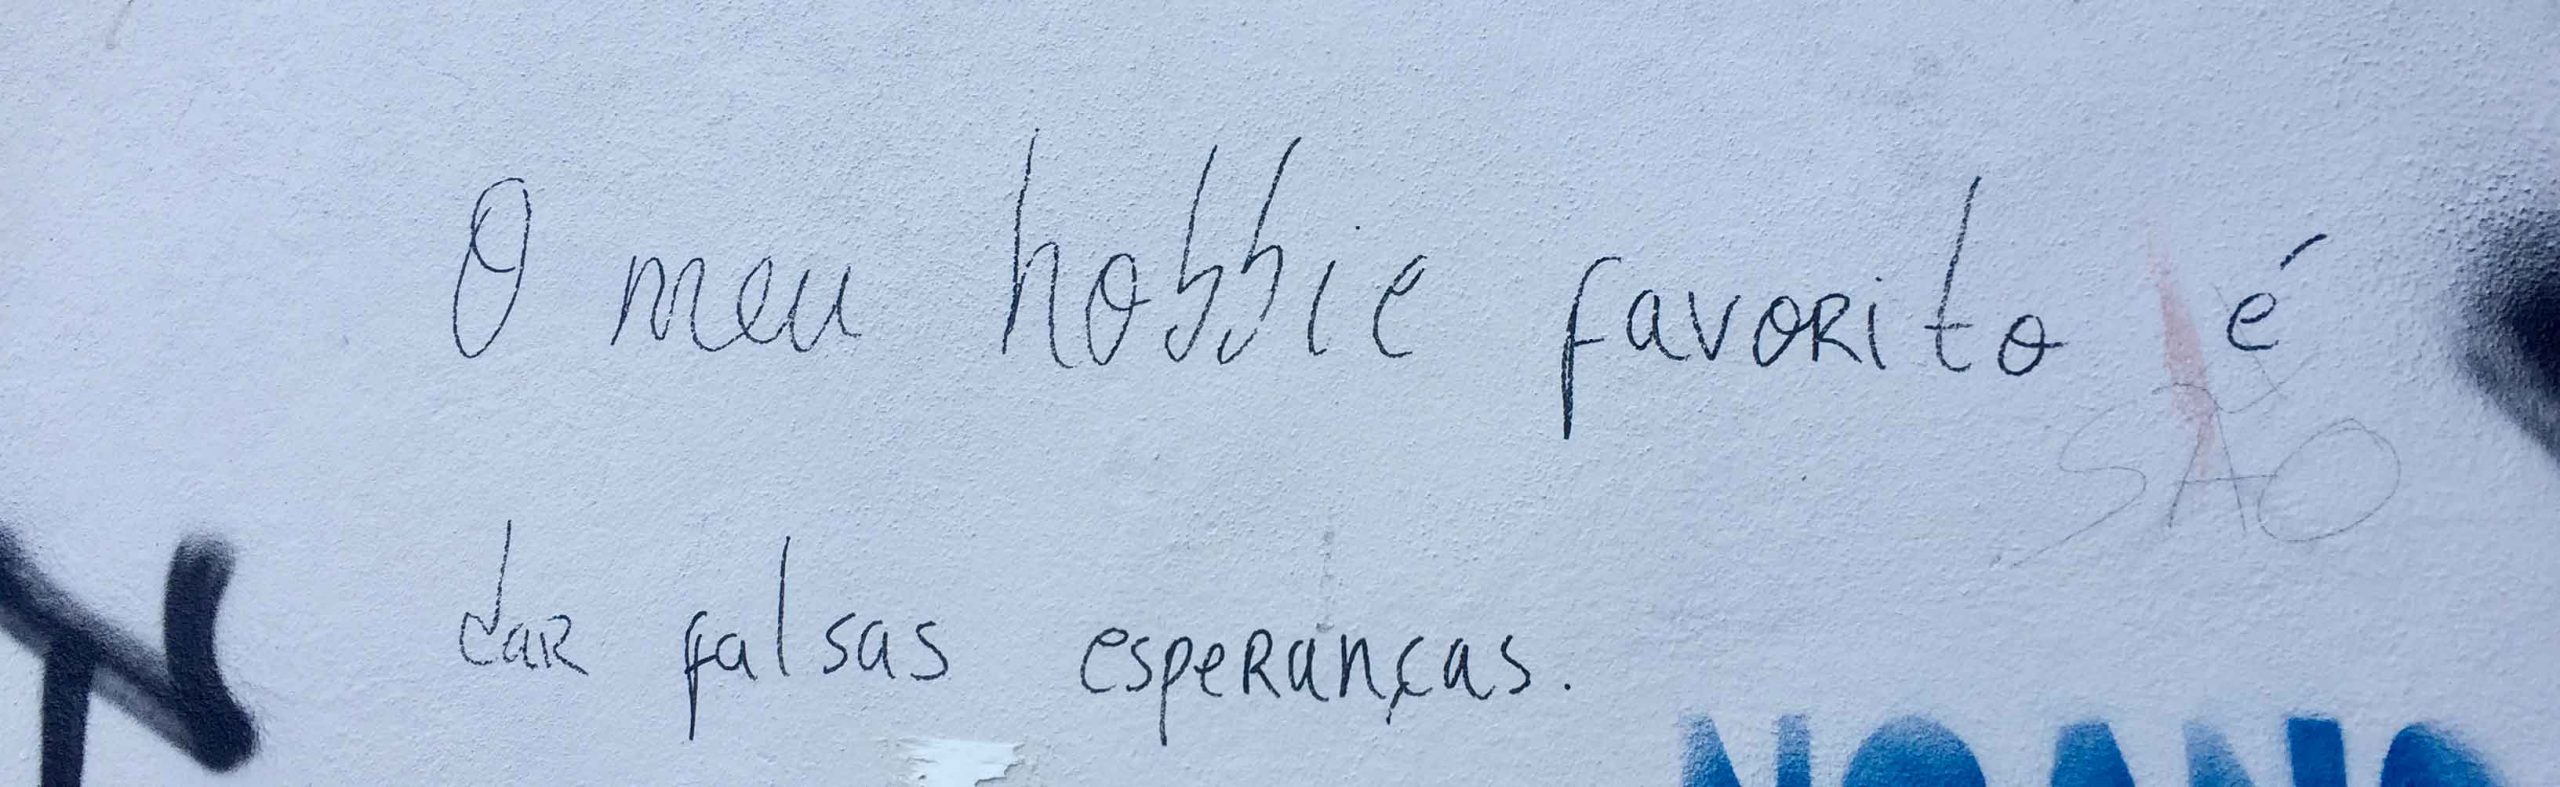 O meu hobbie favorito é
SÃO
dar falsas esperanças.